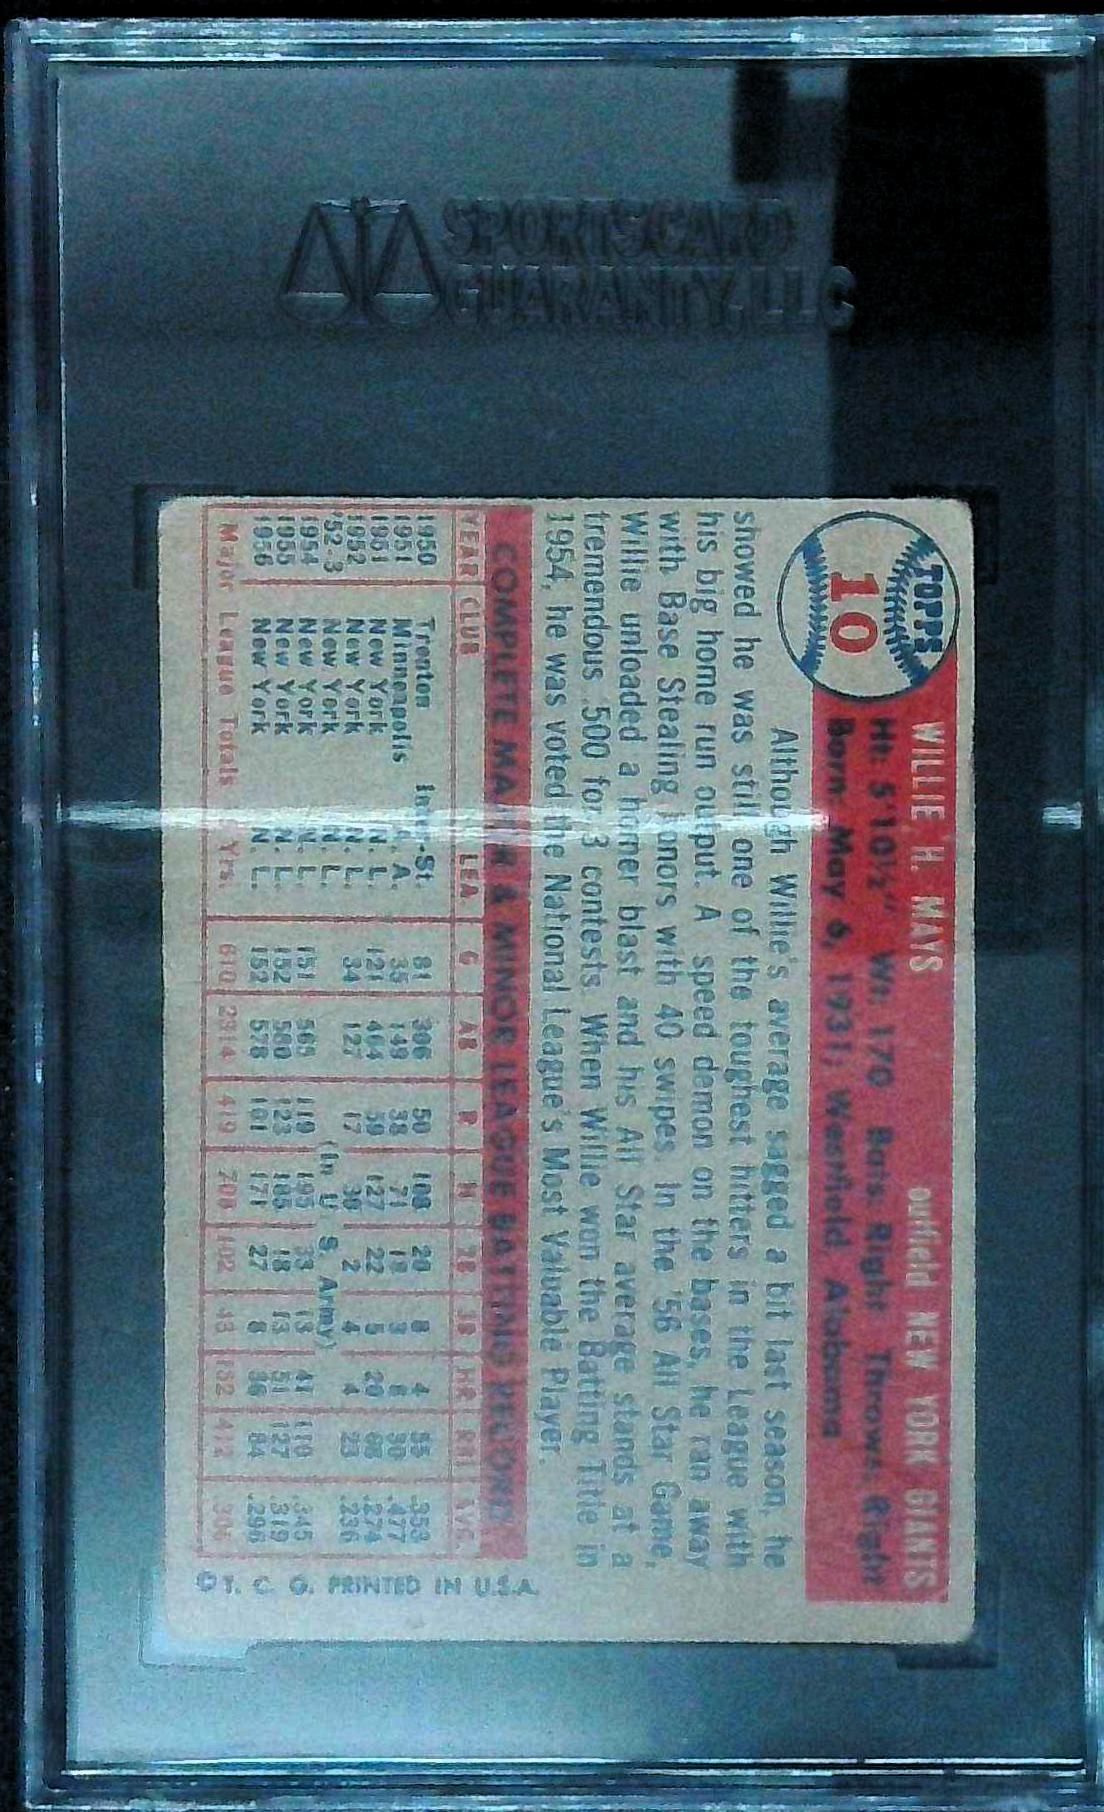 SPORTSCARD
GUARANTY, LLC
TOPPS
10
WILLIE H. MAYS outfield NEW YORK GIANTS
Ht: 5'10½" Wt: 170 Bats: Right Throws: Right
Born: May 6, 1931; Westfield, Alabama
Although Willie's average sagged a bit last season, he
showed he was still one of the toughest hitters in the League with
his big home run output. A speed demon on the bases, he ran away
with Base Stealing honors with 40 swipes. In the '56 All Star Game,
Willie unloaded a homer blast and his All Star average stands at a
tremendous .500 for 3 contests. When Willie won the Batting Title in
1954, he was voted the National League's Most Valuable Player.
COMPLETE MAJOR & MINOR LEAGUE BATTING RECORD
YEAR CLUB LEA G AB R H 2B 3B HR RBI AVG.
1950 Trenton Inter-St. 81 306 50 108 20 8 4 55 .353
1951 Minneapolis A. A. 35 149 38 71 18 3 8 30 .477
1951 New York N. L. 121 464 59 127 22 5 20 68 .274
1952 New York N. L. 34 127 17 30 2 4 4 23 .236
'52-3 New York N. L. (In U. S. Army)
1954 New York N. L. 151 565 119 195 33 13 41 110 .345
1955 New York N. L. 152 580 123 185 18 13 51 127 .319
1956 New York N. L. 152 578 101 171 27 8 36 84 .296
Major League Totals Yrs. 610 2314 419 708 102 43 152 412 .306
© T. C. G. PRINTED IN U.S.A.